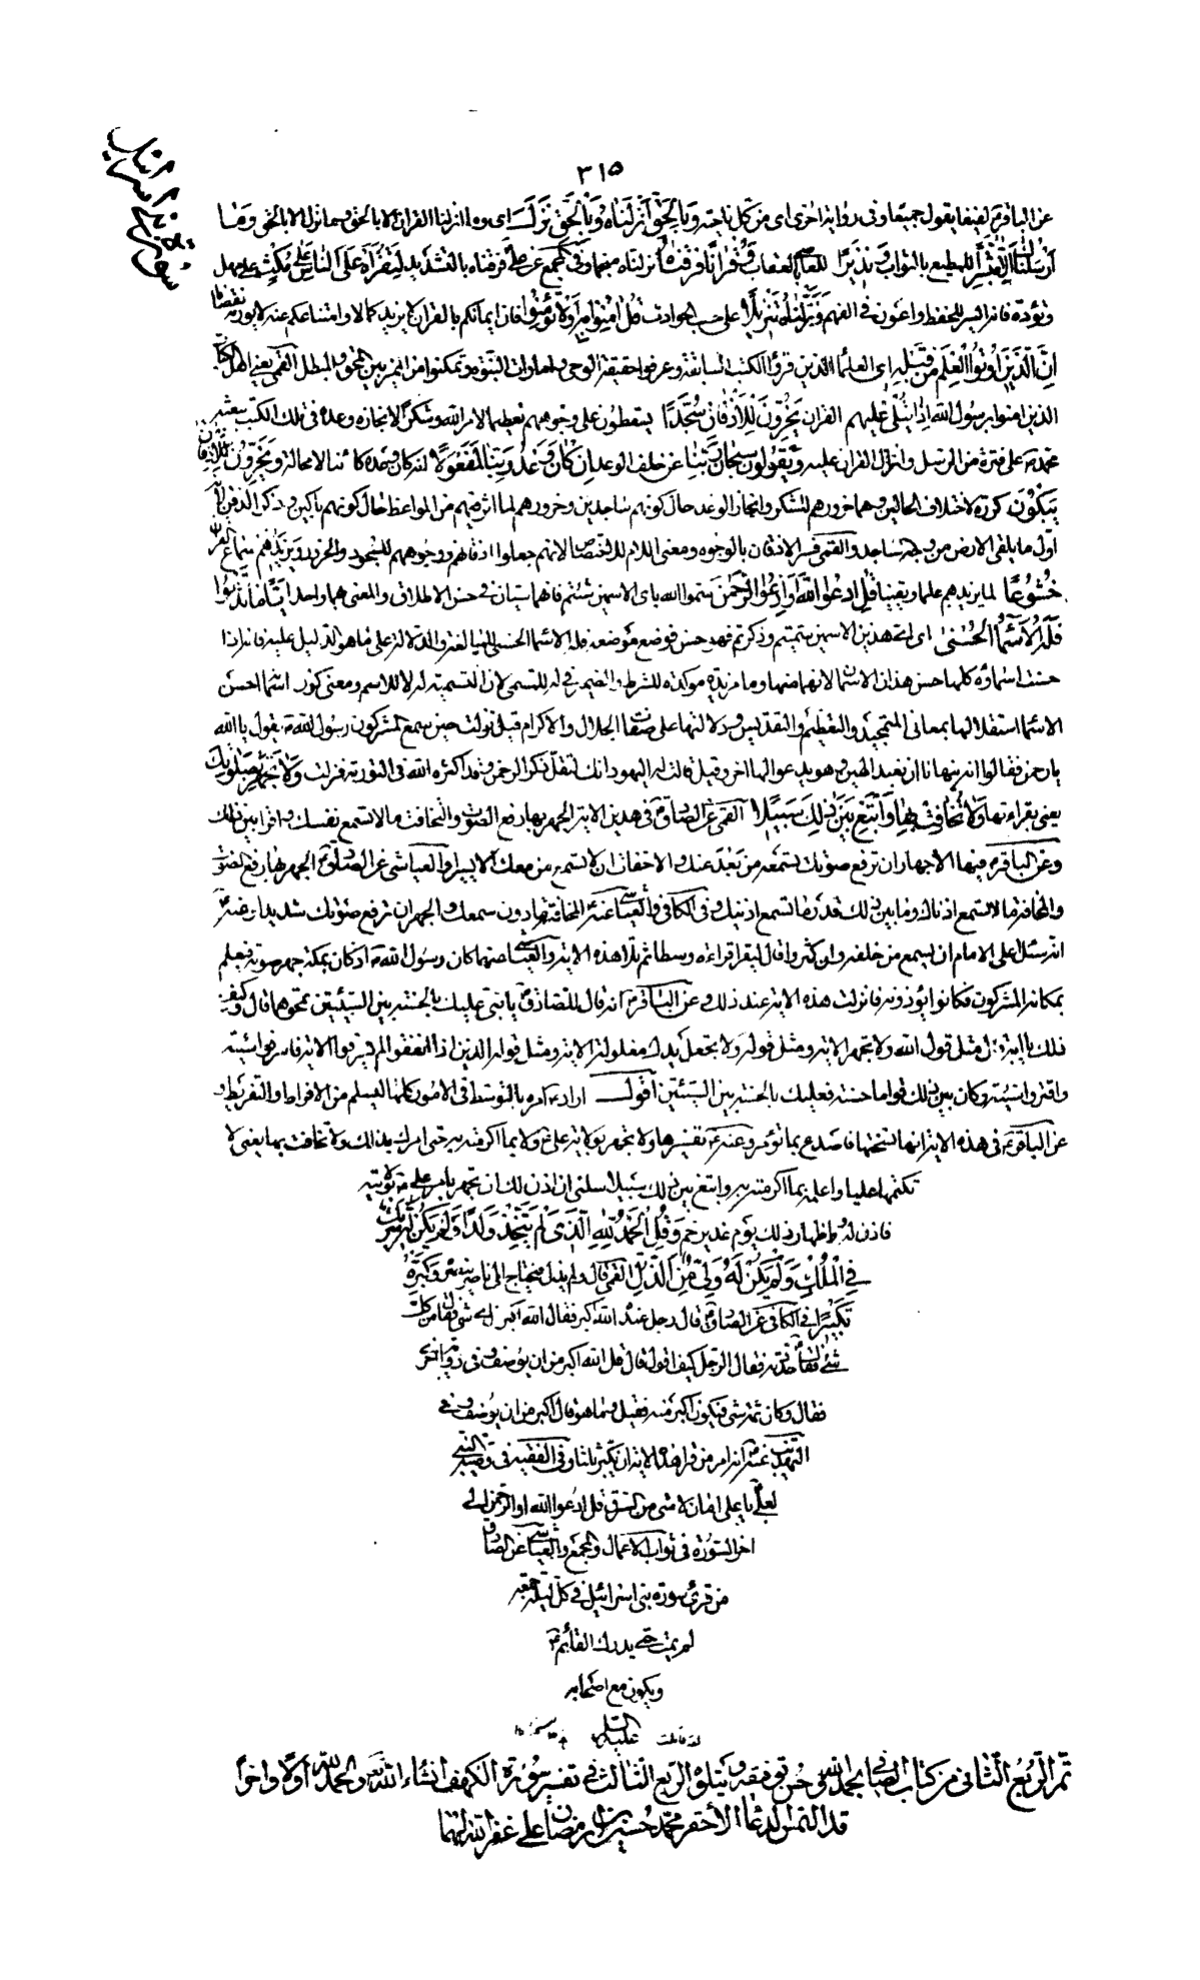 ٣١٥
سورة بني اسرائيل
عن الباقر لفيفا يقول جميعا وفي رواية اخرى اي من كل ناحية وَبِالْحَقِّ اَنْزَلْنَاهُ وَبِالْحَقِّ نَزَلَ اي وما انزلنا القران الا بالحق وما نزل الا بالحق وَمَا
اَرْسَلْنَاكَ اِلَّا مُبَشِّرًا للمطيع بالثواب وَنَذِيرًا للعاصي بالعقاب وَقُرْآنًا فَرَقْنَاهُ انزلناه منجما وفي المجمع عن علي فرقناه بالتشديد لِتَقْرَاَهُ عَلَى النَّاسِ عَلَى مُكْثٍ على مهل
وتؤدة فانه ايسر للحفظ واعون في الفهم وَنَزَّلْنَاهُ تَنْزِيلًا على حسب الحوادث قُلْ اٰمِنُوا بِهِ اَوْ لَا تُؤْمِنُوا فان ايمانكم بالقران لا يزيده كمالا وامتناعكم عنه لا يورثه نقصانا
اِنَّ الَّذِينَ اُوتُوا الْعِلْمَ مِنْ قَبْلِهِ اي العلماء الذين قرؤا الكتب السابقة وعرفوا حقيقة الوحي وامارات النبوة وتمكنوا من الميز بين المحق والمبطل القمي يعني اهل الكتاب
الذين امنوا برسول الله اِذَا يُتْلَى عَلَيْهِمْ القران يَخِرُّونَ لِلْاَذْقَانِ سُجَّدًا يسقطون على وجوههم تعظيما لامر الله وشكرا لانجازه وعده في تلك الكتب ببعثة
محمد على فترة من الرسل وانزال القران عليه وَيَقُولُونَ سُبْحَانَ رَبِّنَا عن خلف الوعد اِنْ كَانَ وَعْدُ رَبِّنَا لَمَفْعُولًا انه كان وعده كائنا لا محالة وَيَخِرُّونَ لِلْاَذْقَانِ
يَبْكُونَ كرره لاختلاف الحالين وهما خرورهم للشكر وانجاز الوعد حال كونهم ساجدين وخرورهم لما اثر فيهم من المواعظ حال كونهم باكين وذكر الذقن لانه
اول ما يلقى الارض من وجه الساجد والقمي فسر الاذقان بالوجوه ومعنى اللام للاختصاص لانهم جعلوا اذقانهم ووجوههم للسجود والخرور وَيَزِيدُهُمْ سماع القران
خُشُوعًا لما يزيدهم علما ويقينا قُلِ ادْعُوا اللهَ اَوِ ادْعُوا الرَّحْمٰنَ سموا الله باي الاسمين شئتم فانهما سيان في حسن الاطلاق والمعنى بهما واحد اَيًّا مَا تَدْعُوا
فَلَهُ الْاَسْمَاءُ الْحُسْنٰى اي اي هذين الاسمين سميتم وذكرتم فهو حسن فوضع موضعه فله الاسماء الحسنى للمبالغة والدلالة على ما هو الدليل عليه فانه اذا
حسنت اسماؤه كلها حسن هذان الاسمان لانهما منها وما مزيدة مؤكدة للشرط والضمير في له للمسمى لان التسمية له لا للاسم ومعنى كون اسمائه احسن
الاسماء استقلالها بمعاني التمجيد والتعظيم والتقديس ودلالتها على صفات الجلال والاكرام قيل نزلت حين سمع المشركون رسول الله يقول يا الله
يا رحمن فقالوا انه ينهانا ان نعبد الهين وهو يدعو الها اخر وقيل قالت له اليهود انك لتقل ذكر الرحمن وقد اكثره الله في التورية فنزلت وَلَا تَجْهَرْ بِصَلَاتِكَ
يعني بقراءتها وَلَا تُخَافِتْ بِهَا وَابْتَغِ بَيْنَ ذٰلِكَ سَبِيلًا القمي عن الصادق في هذه الاية الجهر بها رفع الصوت والتخافت ما لا تسمع نفسك واقرا بين ذلك
وعن الباقر فيها الاجهار ان ترفع صوتك يسمعه من بعد عنك والاخفات ان لا تسمع من معك الا يسيرا والعياشي عن الصادق الجهر بها رفع الصوت
والمخافتة ما لا تسمع اذناك وما بين ذلك قدر ما تسمع اذنيك وفي الكافي والعياشي عنه المخافتة ما دون سمعك والجهر ان ترفع صوتك شديدا وعنه
انه سئل على الامام ان يسمع من خلفه وان كثروا قال ليقرا قراءة وسطا ثم تلا هذه الاية والعياشي عنهما كان رسول الله اذ كان بمكة جهر صوته فيعلم
بمكانه المشركون فكانوا يؤذونه فانزلت هذه الاية عند ذلك وعن الباقر انه قال للصادق يا بني عليك بالحسنة بين السيئتين تمحوهما قال وكيف
ذلك يا ابة قال مثل قول الله ولا تجهر الاية ومثل قوله ولا تجعل يدك مغلولة الاية ومثل قوله الذين اذا انفقوا لم يسرفوا الاية فاسرفوا سيئة
واقتروا سيئة وكان بين ذلك قواما حسنة فعليك بالحسنة بين السيئتين اقول اراد امره بالتوسط في الامور كلها ليسلم من الافراط والتفريط و
عن الباقر في هذه الاية انها نسختها فاصدع بما تؤمر وعنه تفسيرها ولا تجهر بولاية علي ولا بما اكرمته به حتى امرك بذلك ولا تخافت بها يعني لا
تكتمها عليا واعلمه بما اكرمته به وابتغ بين ذلك سبيلا سلني ان اذن لك ان تجهر بامر علي بولايته
فاذن له باظهار ذلك يوم غدير خم وَقُلِ الْحَمْدُ لِلّٰهِ الَّذِي لَمْ يَتَّخِذْ وَلَدًا وَلَمْ يَكُنْ لَهُ شَرِيكٌ
فِي الْمُلْكِ وَلَمْ يَكُنْ لَهُ وَلِيٌّ مِنَ الذُّلِّ القمي قال ولم يذل فيحتاج الى ناصر ينصره وَكَبِّرْهُ
تَكْبِيرًا في الكافي عن الصادق قال رجل عنده الله اكبر فقال الله اكبر من اي شئ فقال من كل
شئ فقال حددته فقال الرجل كيف اقول قال قل الله اكبر من ان يوصف وفي رواية اخرى
فقال وكان ثمة شئ فيكون اكبر منه فقيل وما هو قال اكبر من ان يوصف وفي
التهذيب عنه انه امر من قرا هذه الاية ان يكبر ثلثا وفي الفقيه في وصية النبي
لعلي يا علي امان لامتي من السرق قل ادعوا الله او ادعوا الرحمن الى
اخر السورة في ثواب الاعمال والمجمع والعياشي عن الصادق
من قرئ سورة بني اسرائيل في كل ليلة جمعة
لم يمت حتى يدرك القائم
ويكون مع اصحابه
عليه السلام
تم الربع الثاني من كتاب الصافي بحمد الله وحسن توفيقه ويتلوه الربع الثالث في تفسير سورة الكهف انشاء الله والحمد لله اولا واخرا
قد التمس الدعاء الاحقر محمد حسين بن رمضان علي غفر الله لهما